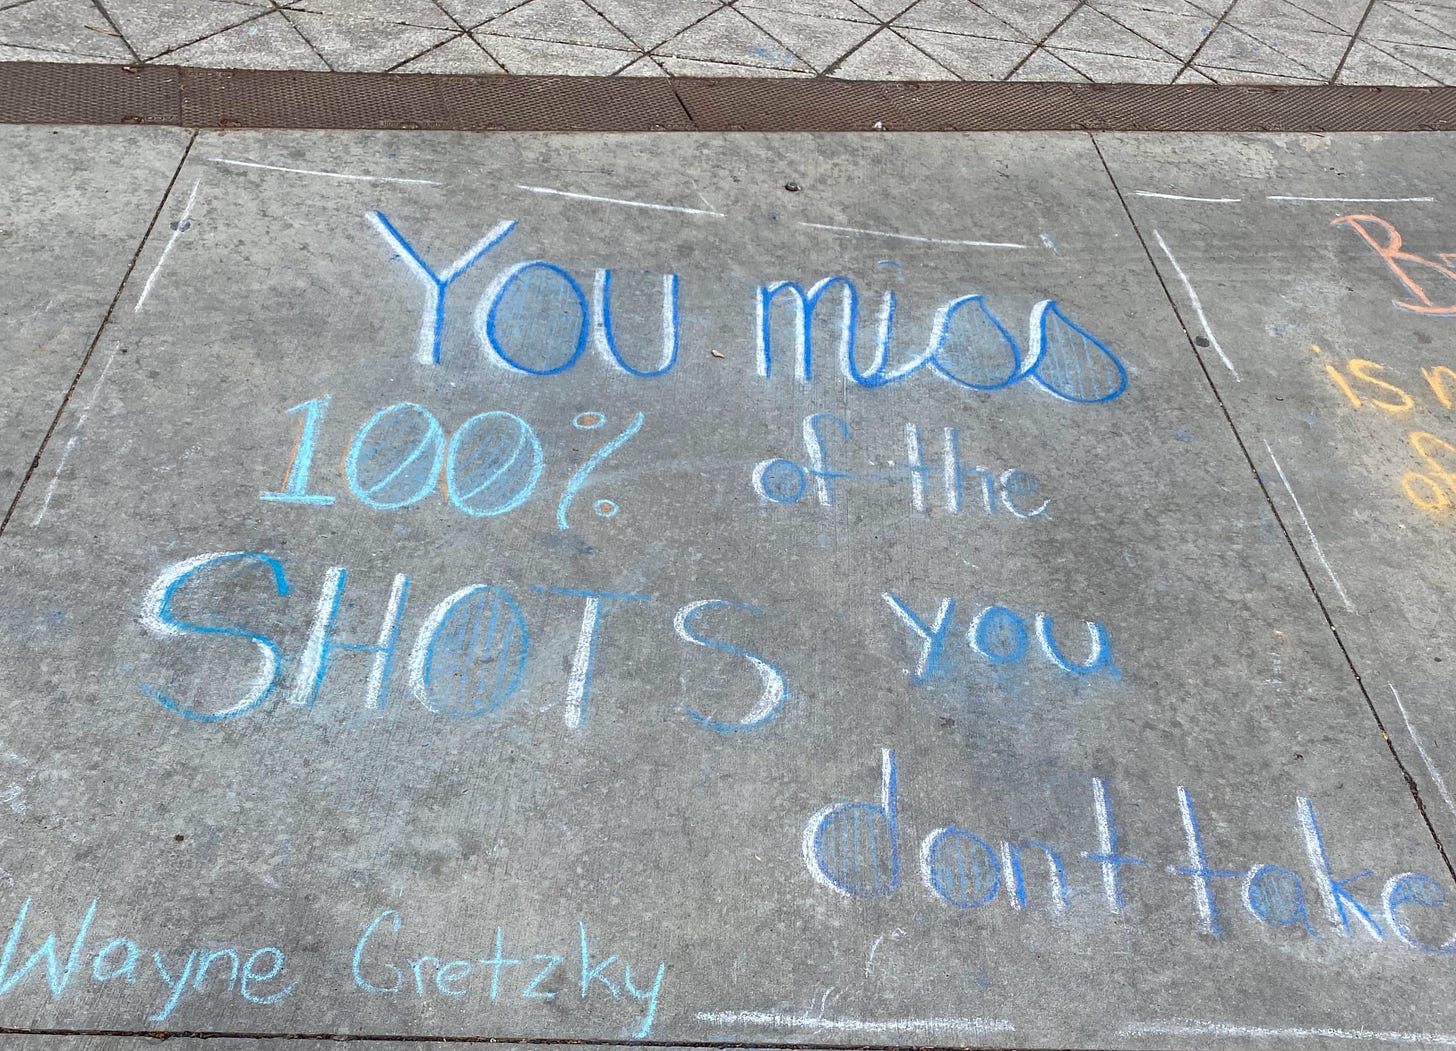 You miss
100% of the
SHOTS you
dont take
Wayne Gretzky
is
of